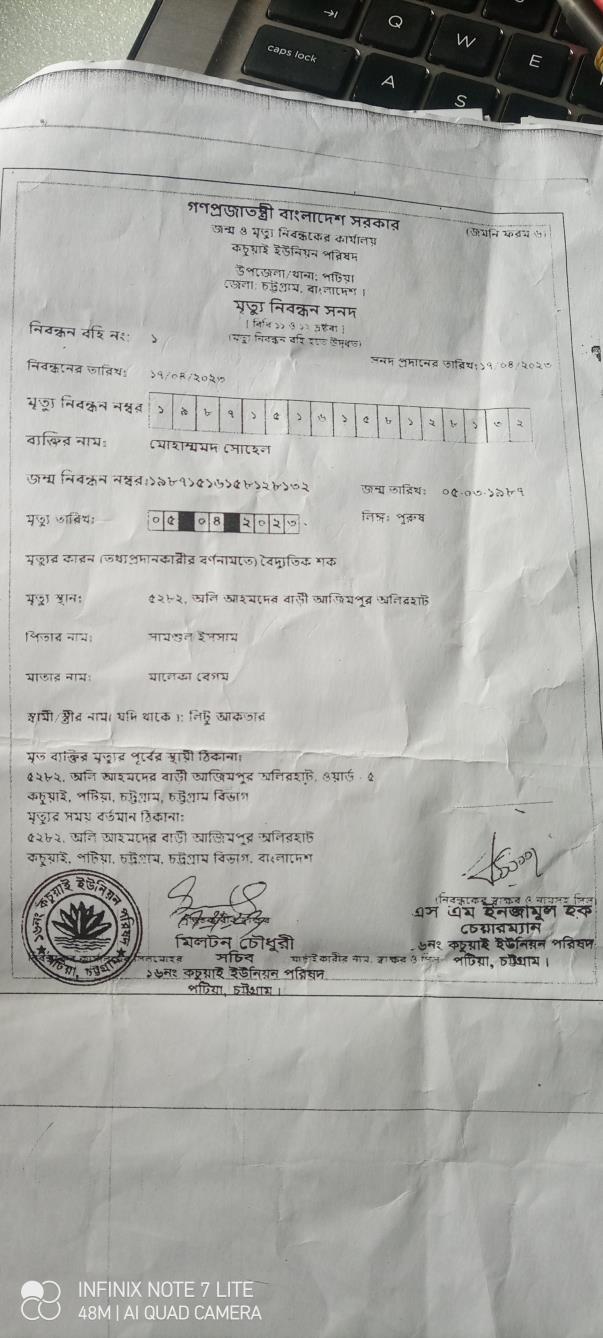 caps lock
Q
W
E
A
S
গণপ্রজাতন্ত্রী বাংলাদেশ সরকার
জন্ম ও মৃত্যু নিবন্ধকের কার্যালয়
কচুয়াই ইউনিয়ন পরিষদ
উপজেলা/থানা: পটিয়া
জেলা: চট্টগ্রাম, বাংলাদেশ।
মৃত্যু নিবন্ধন সনদ
(মৃত্যু নিবন্ধন বহি হতে উদ্ধৃত)
নিবন্ধন বহি নং: ১
সনদ প্রদানের তারিখ: ১৭/০৪/২০২৩
নিবন্ধনের তারিখ: ১৭/০৪/২০২৩
মৃত্যু নিবন্ধন নম্বর ১ ৯ ৮ ৭ ১ ৫ ১ ৬ ১ ৫ ৮ ১ ২ ৮ ১ ৩ ২
ব্যক্তির নাম: মোহাম্মদ সোহেল
জন্ম নিবন্ধন নম্বর:১৯৮৭১৫১৬১৫৮১২৮১৩২ জন্ম তারিখ: ০৫-০৩-১৯৮৭
মৃত্যু তারিখ: ০৫ ০৪ ২০২৩ লিঙ্গ: পুরুষ
মৃত্যুর কারন (তথ্যপ্রদানকারীর বর্ণনামতে) বৈদ্যুতিক শক
মৃত্যু স্থান: ৫২৮২, অলি আহমদের বাড়ী আজিমপুর অলিরহাট
পিতার নাম: সামশুল ইসলাম
মাতার নাম: মালেকা বেগম
স্বামী/স্ত্রীর নাম( যদি থাকে ): লিটু আকতার
মৃত ব্যক্তির মৃত্যুর পূর্বের স্থায়ী ঠিকানা:
৫২৮২, অলি আহমদের বাড়ী আজিমপুর অলিরহাট, ওয়ার্ড - ৫
কচুয়াই, পটিয়া, চট্টগ্রাম, চট্টগ্রাম বিভাগ
মৃত্যুর সময় বর্তমান ঠিকানা:
৫২৮২, অলি আহমদের বাড়ী আজিমপুর অলিরহাট
কচুয়াই, পটিয়া, চট্টগ্রাম, চট্টগ্রাম বিভাগ, বাংলাদেশ
১৬নং কচুয়াই ইউনিয়ন পরিষদ
পটিয়া, চট্টগ্রাম
মিলটন চৌধুরী
সচিব
১৬নং কচুয়াই ইউনিয়ন পরিষদ
পটিয়া, চট্টগ্রাম।
এস এম ইনজামুল হক
চেয়ারম্যান
৬নং কচুয়াই ইউনিয়ন পরিষদ
পটিয়া, চট্টগ্রাম।
INFINIX NOTE 7 LITE
48M | AI QUAD CAMERA